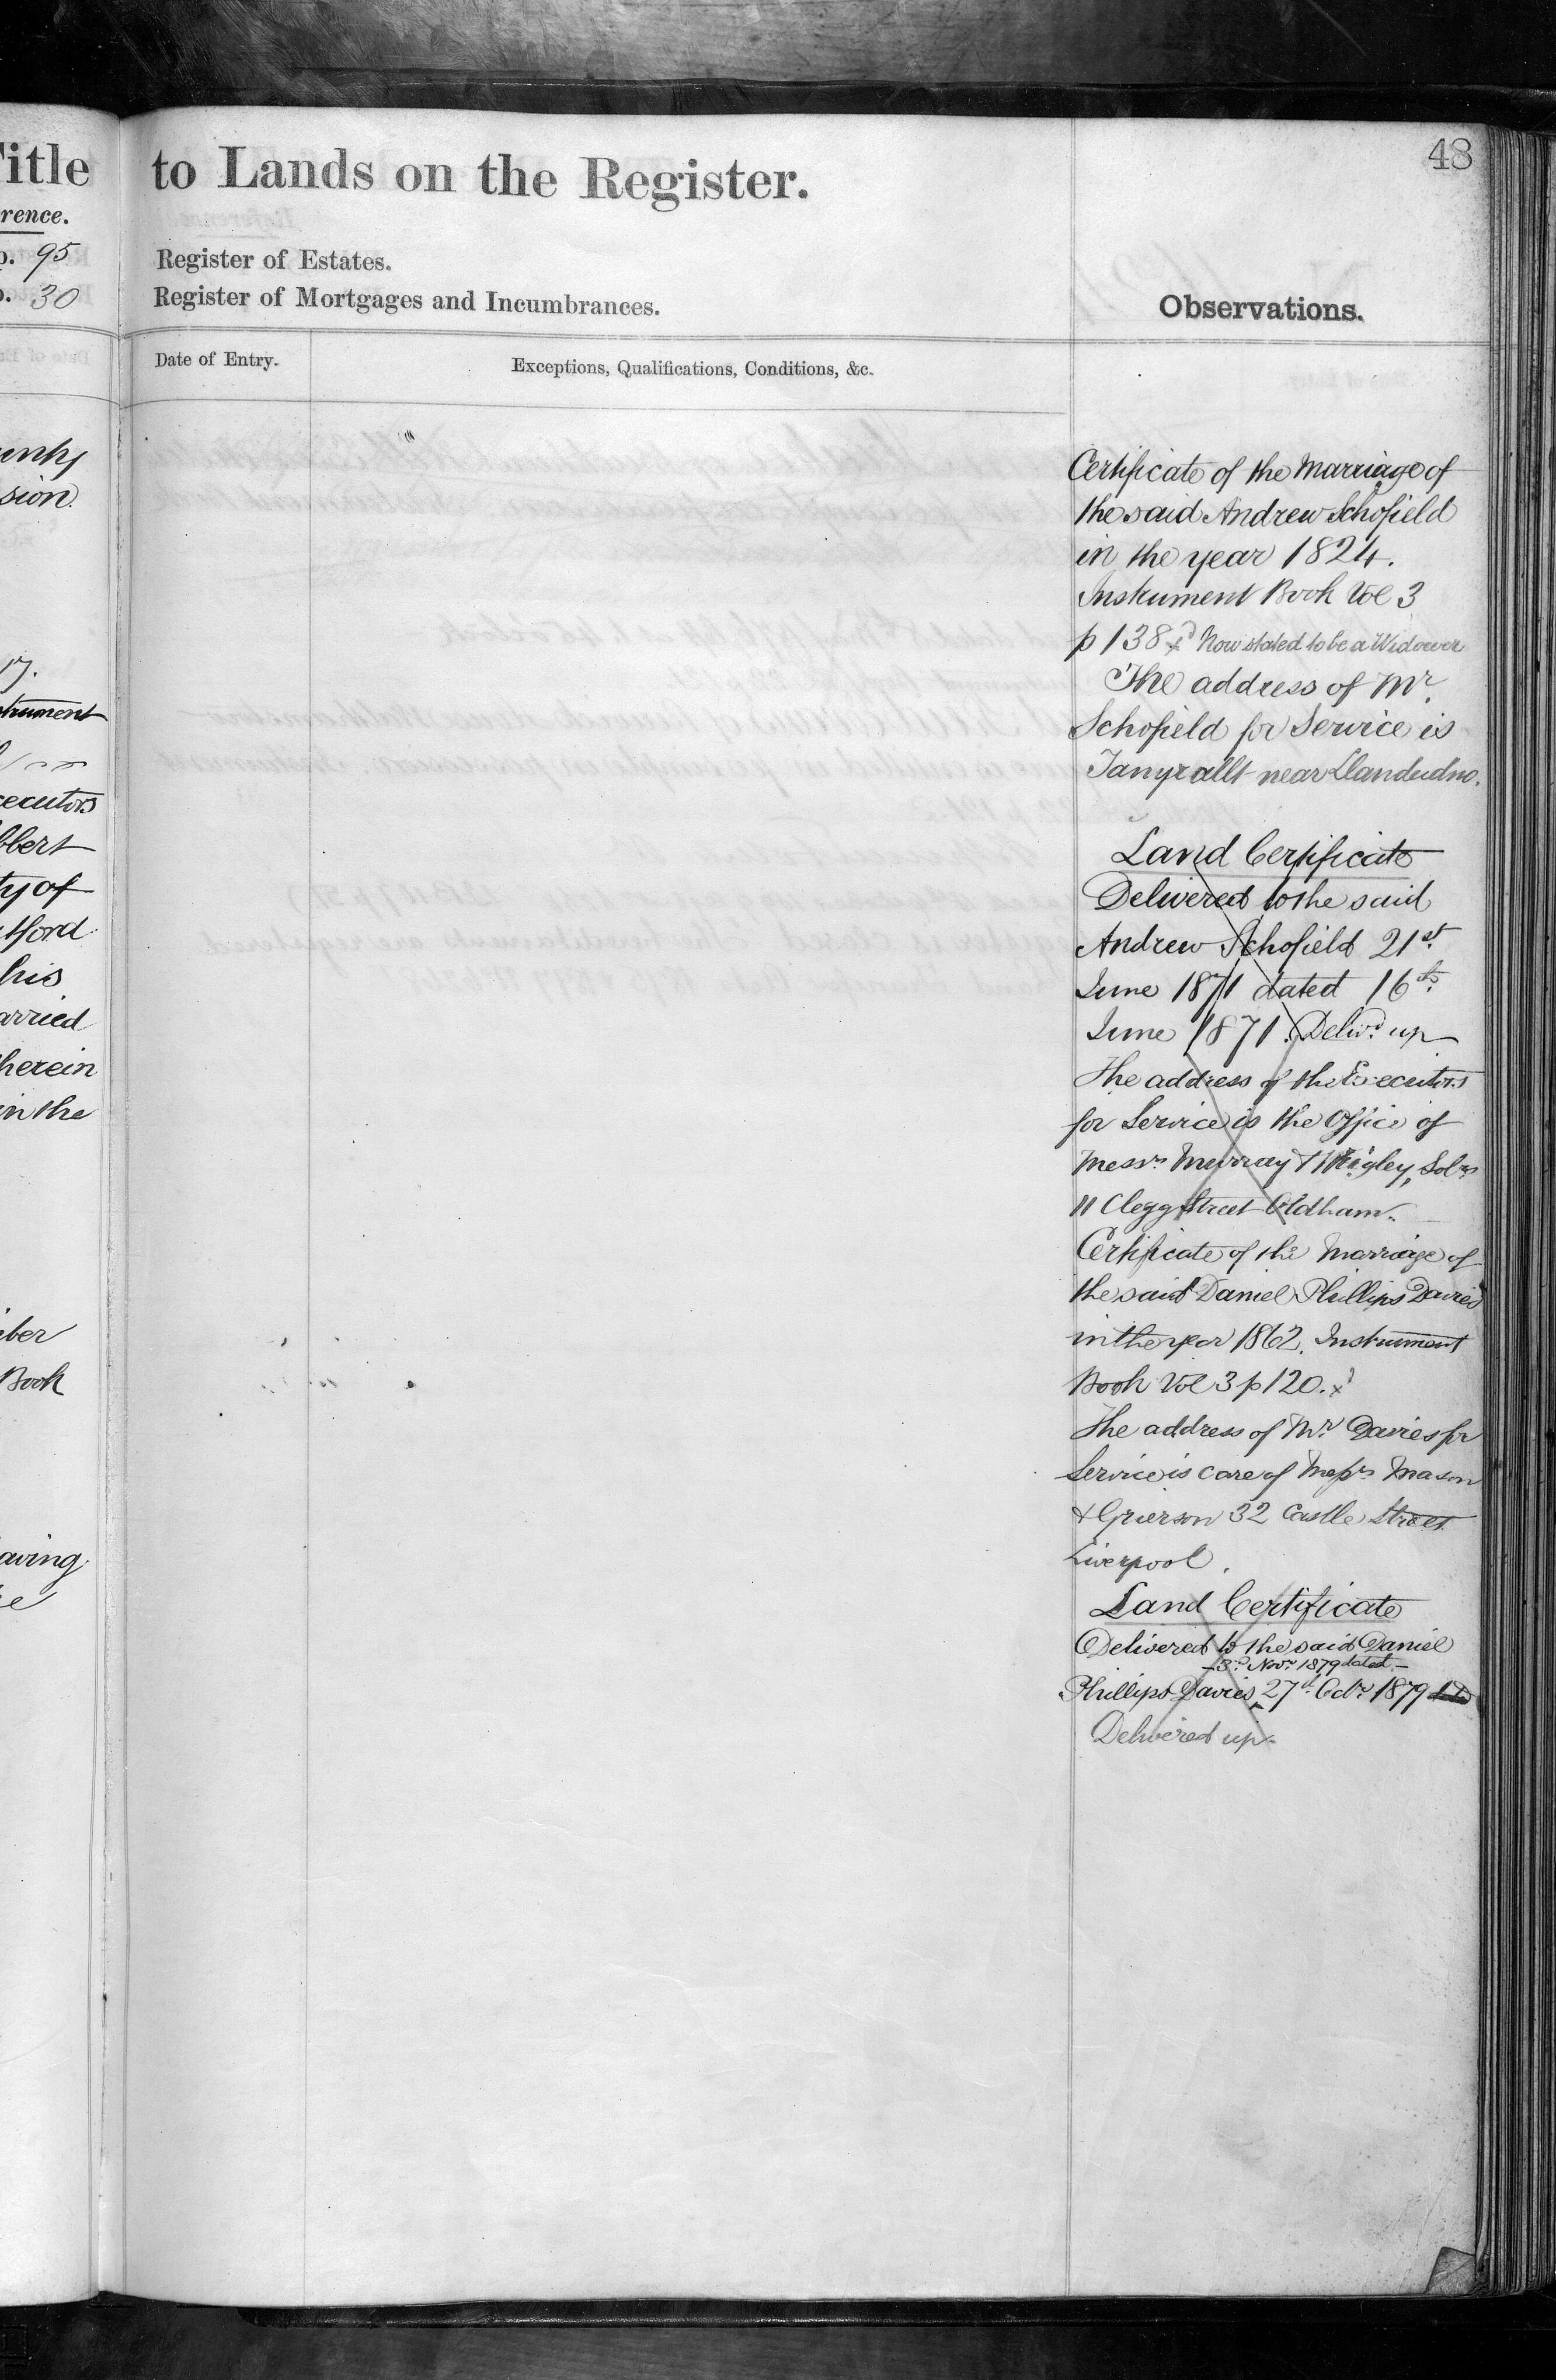 Title
rence.
p. 95
p. 30
sion.
17.
strument
ecutors
bert
ty of
tford
his
arried
herein
in the
ber
Book
aving
48
to Lands on the Register.
Register of Estates.
Register of Mortgages and Incumbrances.
Observations.
Date of Entry.
Exceptions, Qualifications, Conditions, &c.
Certificate of the Marriage of
the said Andrew Schofield
in the year 1824.
Instrument Book Vol 3
p 138 x Now stated to be a Widower
The address of Mr.
Schofield for Service is
Tanyrallt near Llandudno.
Land Certificate
Delivered to the said
Andrew Schofield 21st
June 1871 dated 16th
June 1871. Delivd. up
The address of the Executors
for Service is the Office of
Messrs Murray & Wrigley, Solrs
11 Clegg Street Oldham.
Certificate of the Marriage of
the said Daniel Phillips Davies
in the year 1862. Instrument
Book Vol 3 p 120. x
The address of Mr Davies for
Service is care of Messrs Mason
& Grierson 32 Castle Street
Liverpool.
Land Certificate
Delivered to the said Daniel
3rd Novr 1879 dated
Phillips Davies 27th Octr 1879
Delivered up.